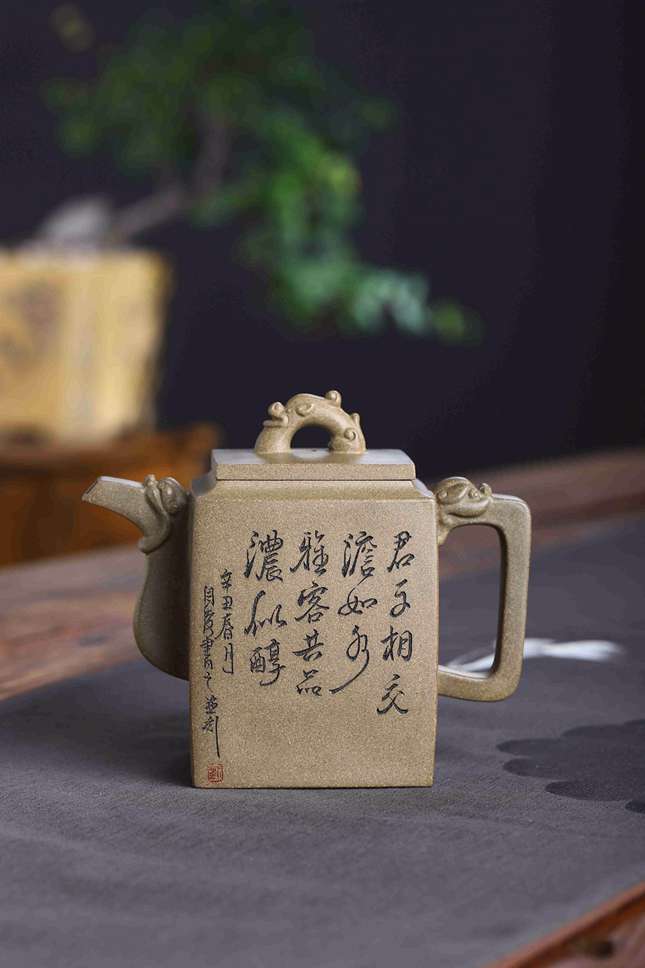 君子相交
澹如水
雅客共品
濃似醇
辛丑春月